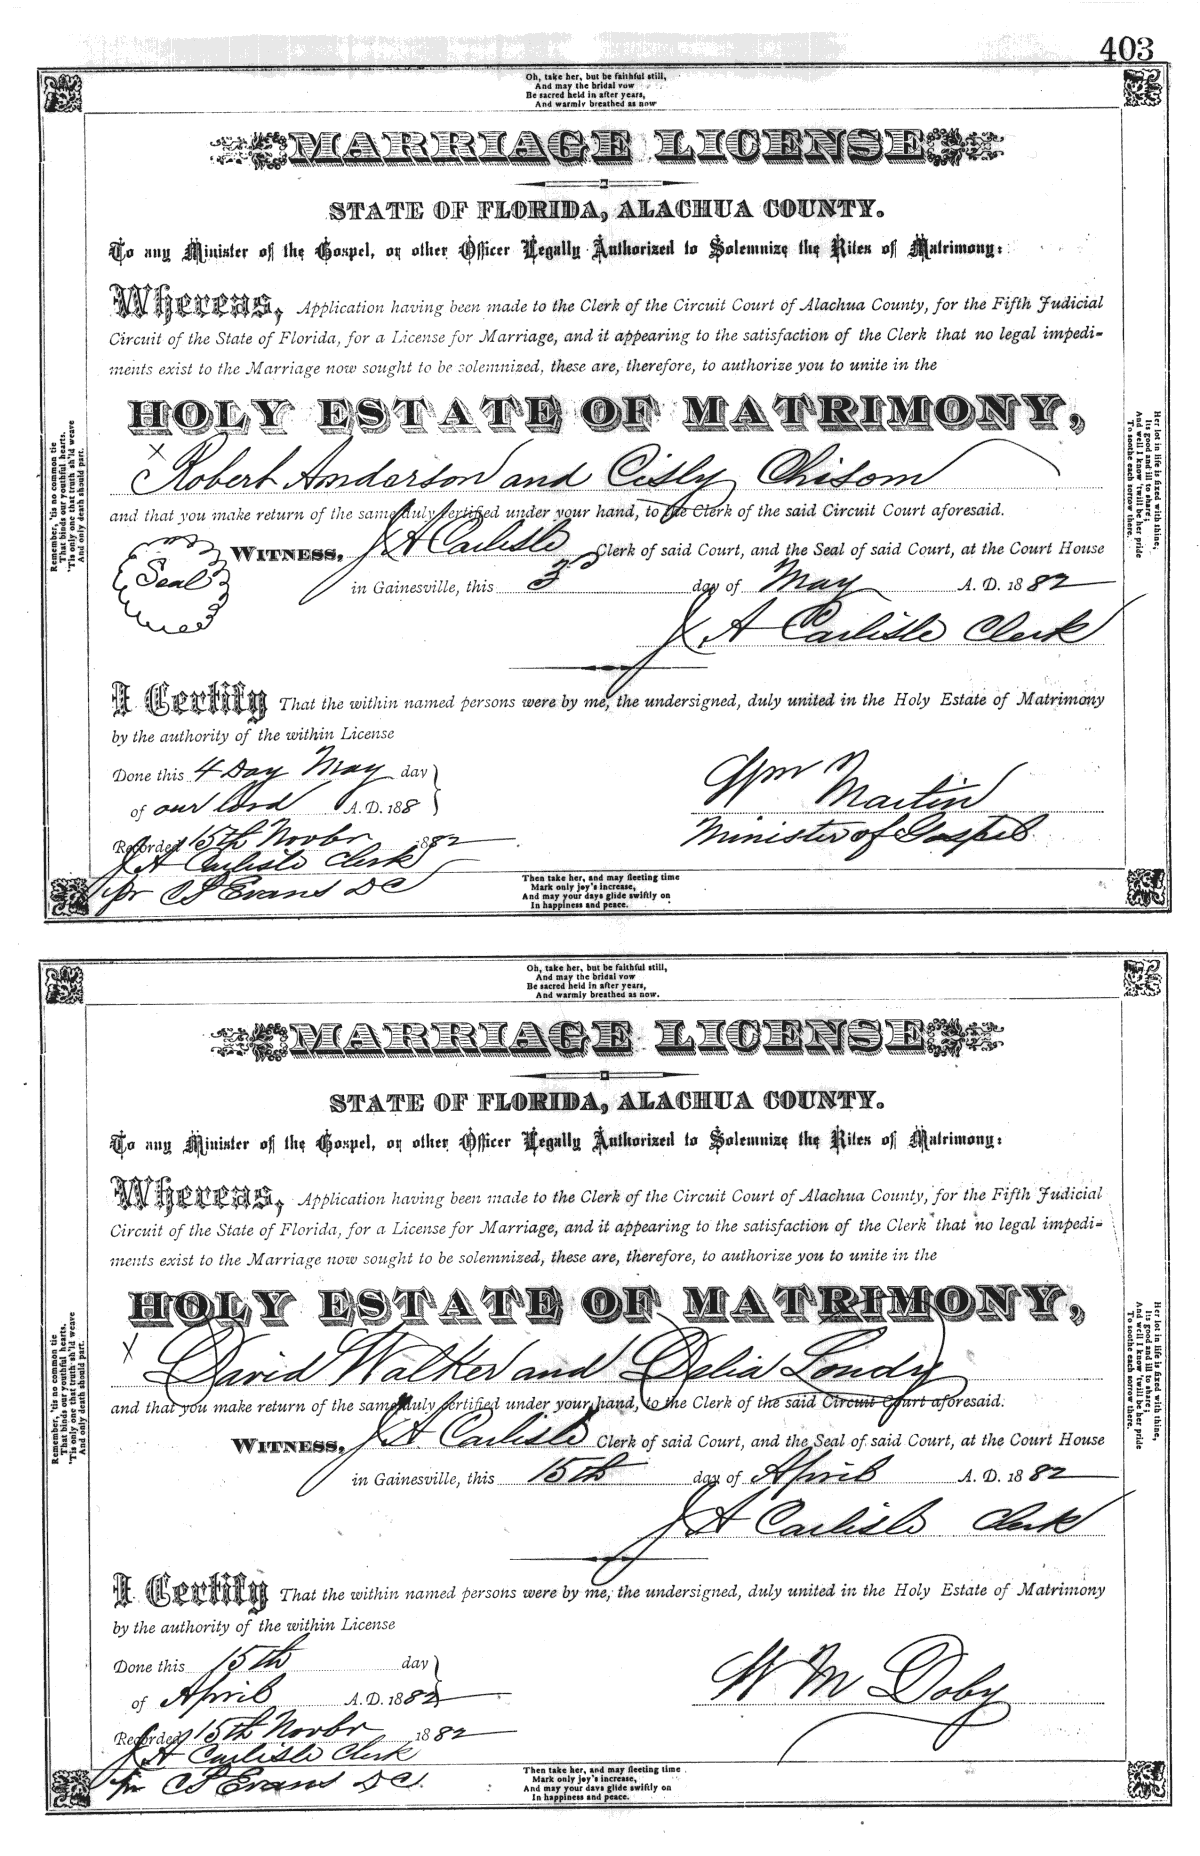 403
Oh, take her, but be faithful still,
And may the bridal vow
Be sacred held in after years,
And warmly breathed as now
MARRIAGE LICENSE
STATE OF FLORIDA, ALACHUA COUNTY.
To any Minister of the Gospel, or other Officer Legally Authorized to Solemnize the Rites of Matrimony:
Whereas, Application having been made to the Clerk of the Circuit Court of Alachua County, for the Fifth Judicial
Circuit of the State of Florida, for a License for Marriage, and it appearing to the satisfaction of the Clerk that no legal impedi-
ments exist to the Marriage now sought to be solemnized, these are, therefore, to authorize you to unite in the
HOLY ESTATE OF MATRIMONY,
x Robert Anderson and Cisly Chisom
and that you make return of the same duly certified under your hand, to the Clerk of the said Circuit Court aforesaid.
Seal
WITNESS, J A Carlisle Clerk of said Court, and the Seal of said Court, at the Court House
in Gainesville, this 3d day of May A. D. 1882
J. A Carlisle Clerk
I Certify That the within named persons were by me, the undersigned, duly united in the Holy Estate of Matrimony
by the authority of the within License
Done this 4 Day May day
of our lord A.D. 188
Wm Martin
Minister of Gospel
Recorded 15th Novbr 1882
J A Carlisle Clerk
pr C P Evans DC
Then take her, and may fleeting time
Mark only joy's increase,
And may your days glide swiftly on
In happiness and peace.
Remember, 'tis no common tie
That binds our youthful hearts.
'Tis only one that truth sh'ld weave
And only death should part.
Her lot in life is fixed with thine;
Its good and ill to share;
And well I know 'twill be her pride
To soothe each sorrow there.
Oh, take her, but be faithful still,
And may the bridal vow
Be sacred held in after years,
And warmly breathed as now.
MARRIAGE LICENSE
STATE OF FLORIDA, ALACHUA COUNTY.
To any Minister of the Gospel, or other Officer Legally Authorized to Solemnize the Rites of Matrimony:
Whereas, Application having been made to the Clerk of the Circuit Court of Alachua County, for the Fifth Judicial
Circuit of the State of Florida, for a License for Marriage, and it appearing to the satisfaction of the Clerk that no legal impedi-
ments exist to the Marriage now sought to be solemnized, these are, therefore, to authorize you to unite in the
HOLY ESTATE OF MATRIMONY,
x David Walker and Delia Londy
and that you make return of the same duly certified under your hand, to the Clerk of the said Circuit Court aforesaid.
WITNESS, J A Carlisle Clerk of said Court, and the Seal of said Court, at the Court House
in Gainesville, this 15th day of April A. D. 1882
J A Carlisle Clerk
I Certify That the within named persons were by me, the undersigned, duly united in the Holy Estate of Matrimony
by the authority of the within License
Done this 15th day
of April A.D. 1882
W M Doby
Recorded 15th Novbr 1882
J A Carlisle Clerk
pr C P Evans DC.
Then take her, and may fleeting time
Mark only joy's increase,
And may your days glide swiftly on
In happiness and peace.
Remember, 'tis no common tie
That binds our youthful hearts.
'Tis only one that truth sh'ld weave
And only death should part.
Her lot in life is fixed with thine,
Its good and ill to share;
And well I know 'twill be her pride
To soothe each sorrow there.